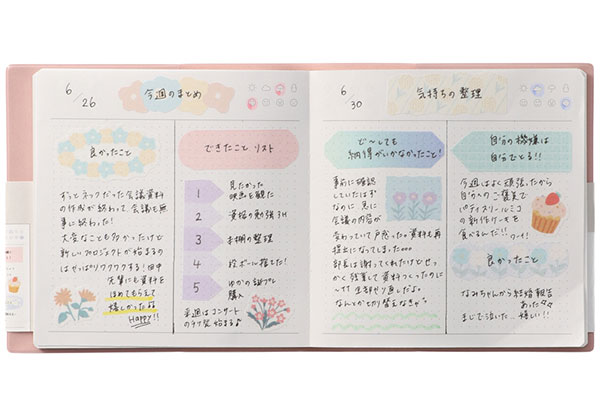 6
26
今週のまとめ
良かったこと
ずっとネックだった会議資料
の作成が終わって、会議も無
事に終わった!
大変なことも多かったけど
新しいプロジェクトが始まるの
はやっぱりワクワクする!田中
先輩にも資料を
ほめてもらえて
嬉しかった
Happy!!
できたこと リスト
1 見たかった
映画を観た
2 資格の勉強 3H
3 本棚の整理
4 段ボール捨てた!
5 ゆかの誕プレ
購入
来週はコンサート
始まる♪
6
30
気持ちの整理
ど〜しても
納得がいかなかったこと!
事前に確認
していたはず
なのに、急に
会議の内容が
変わっていて戸惑った。資料も再
提出になってしまった…
部長は謝ってくれたけどせっ
かく残業して資料つくったのに
全部やり直しだよ
なんとか切り替えなきゃ
自分の機嫌は
自分でとる!!
今週はよく頑張ったから
自分へのご褒美で
パティスリールミコ
の新作ケーキを
食べるんだ!!
ワーイ!
良かったこと
なみちゃんから結婚報告
あった
まじで泣いた…嬉しい!!